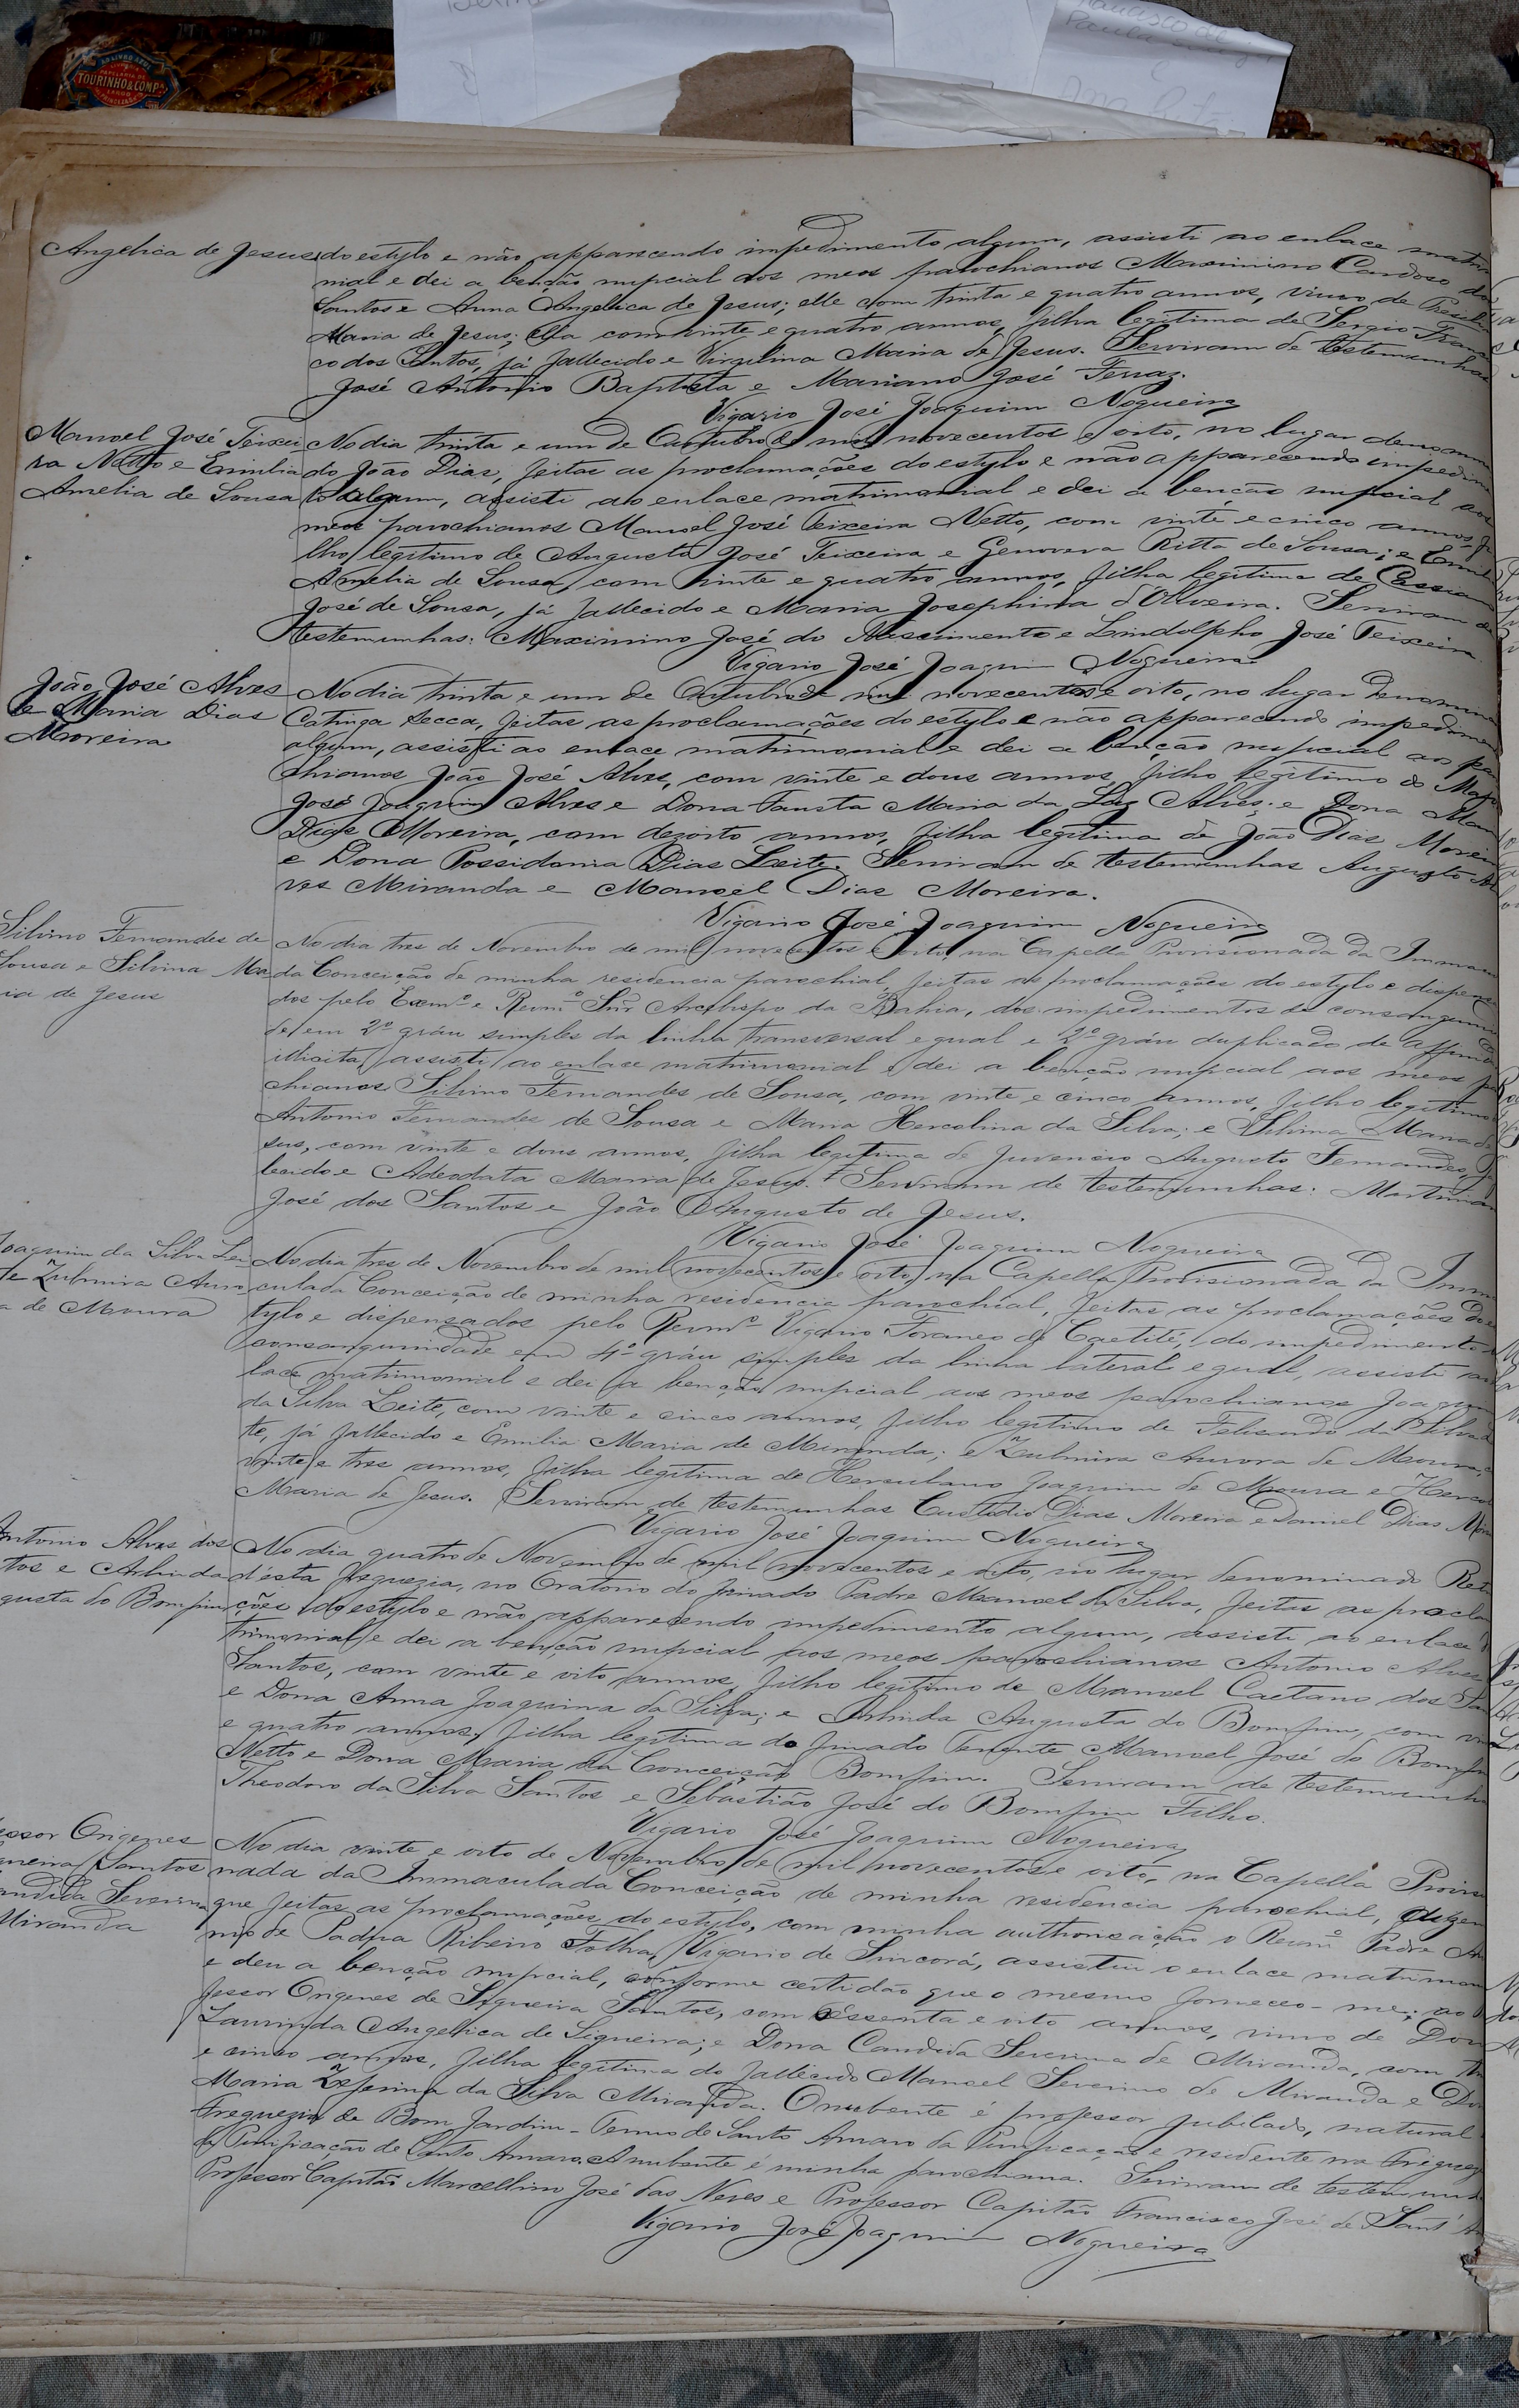 AO LIVRO AZUL
PAPELARIA DE
TOURINHO & COMPA
Angelica de Jesus
do estylo e não apparecendo impedimento algum, assisti ao enlace matri
nial e dei a benção nupcial aos meos parochianos Maximiano Cardoso dos
Santos e Anna Angelica de Jesus; elle com trinta e quatro annos, viuvo de
Maria de Jesus; ella com vinte e quatro annos, filha legitima de Sergio Fran
co dos Santos, já fallecido e Virgilina Maria de Jesus. Serviram de testemunhas
José Antonio Baptista e Mariano José Ferraz.
Vigario José Joaquim Nogueira
Manoel José Teixei-
ra Netto e Emilia
Amelia de Sousa
No dia trinta e um de Outubro de mil novecentos e oito, no lugar denomina
do João Dias, feitas as proclamações do estylo e não apparecendo impedimen
to algum, assisti ao enlace matrimonial e dei a benção nupcial aos
meos parochianos Manoel José Teixeira Netto, com vinte e cinco annos, fi
lho legitimo de Augusto José Teixeira e Genoveva Ritta de Sousa; e Emilia
Amelia de Sousa, com vinte e quatro annos, filha legitima de Cassiano
José de Sousa, já fallecido e Maria Josephina d'Oliveira. Serviram de
testemunhas: Maximino José do Nascimento e Lindolpho José Teixeira.
Vigario José Joaquim Nogueira
João José Alves
e Maria Dias
Moreira
No dia trinta e um de Outubro de mil novecentos e oito, no lugar denomina
Catinga Secca, feitas as proclamações do estylo e não apparecendo impedimen
algum, assisti ao enlace matrimonial e dei a benção nupcial aos paro
chianos João José Alves, com vinte e dous annos, filho legitimo do Major
José Joaquim Alves e Dona Fausta Maria da Luz Alves; e Dona Maria
Dias Moreira, com dezoito annos, filha legitima de João Dias Moreira
e Dona Possidonia Dias Leite. Serviram de testemunhas Augusto Al
ves Miranda e Manoel Dias Moreira.
Vigario José Joaquim Nogueira
Silvino Fernandes de
Sousa e Silvina Ma
ria de Jesus
No dia tres de Novembro de mil novecentos e oito, na Capella Provisionada da Immacu
da Conceição de minha residencia parochial, feitas as proclamações do estylo e dispensa
dos pelo Exmº e Revmº Snr. Arcebispo da Bahia, dos impedimentos de consanguini
de, em 2º gráu simples da linha transversal egual e 2º gráu duplicado de affini
illicita, assisti ao enlace matrimonial e dei a benção nupcial aos meos pa
chianos Silvino Fernandes de Sousa, com vinte e cinco annos, filho legitimo
Antonio Fernandes de Sousa e Maria Hercolina da Silva; e Silvina Maria de
sus, com vinte e dous annos, filha legitima de Juvencio Augusto Fernandes,
lecido e Adeodata Maria de Jesus. Serviram de testemunhas: Martinian
José dos Santos e João Augusto de Jesus.
Vigario José Joaquim Nogueira
Joaquim da Silva Lei
te e Zulmira Auro
a de Moura
No dia tres de Novembro de mil novecentos e oito, na Capella Provisionada da Imma
culada Conceição de minha residencia parochial, feitas as proclamações do es
tylo e dispensados pelo Revmº Vigario Foraneo de Caetité, do impedimento
consanguinidade em 4º gráu simples da linha lateral egual, assisti ao en
lace matrimonial e dei a benção nupcial aos meos parochianos Joaquim
da Silva Leite, com vinte e cinco annos, filho legitimo de Felisardo da Silva
te, já fallecido e Emilia Maria de Miranda; e Zulmira Aurora de Moura,
vinte e tres annos, filha legitima de Herculano Joaquim de Moura e Herco
Maria de Jesus. Serviram de testemunhas Custodio Dias Moreira e Daniel Dias Mor
Vigario José Joaquim Nogueira
Antonio Alves dos
tos e Arlinda
gusta do Bomfim
No dia quatro de Novembro de mil novecentos e oito, no lugar denominado
d'esta freguezia, no Oratorio do finado Padre Manoel da Silva, feitas as procla
ções do estylo e não apparecendo impedimento algum, assisti ao enlace
trimonial e dei a benção nupcial aos meos parochianos Antonio Alves
Santos, com vinte e oito annos, filho legitimo de Manoel Caetano dos San
e Dona Anna Joaquina da Silva; e Arlinda Augusta do Bomfim, com vin
e quatro annos, filha legitima do finado Tenente Manoel José do Bomfim
Netto e Dona Maria da Conceição Bomfim. Serviram de testemunhas
Theodoro da Silva Santos e Sebastião José do Bomfim Filho.
Vigario José Joaquim Nogueira
essor Origenes
gueira Santos
andida Severina
Miranda
No dia vinte e oito de Novembro de mil novecentos e oito, na Capella Provisi
nada da Immaculada Conceição de minha residencia parochial,
que feitas as proclamações do estylo, com minha authorisação o Revmº Padre An
nio de Padua Ribeiro Folha, Vigario de Sincorá, assistiu o enlace matrimon
e deu a benção nupcial, conforme certidão que o mesmo forneceo-me; ao
fessor Origenes de Siqueira Santos, com sessenta e oito annos, viuvo de Dona
Laurinda Angelica de Siqueira; e Dona Candida Severina de Miranda, com
e cinco annos, filha legitima do fallecido Manoel Severino de Miranda e Do
Maria Zeferina da Silva Miranda. O nubente é professor jubilado, natural
Freguezia de Bom Jardim - Termo de Santo Amaro da Purificação e residente na freguez
da Purificação de Santo Amaro. A nubente é minha parochiana. Serviram de testemun
Professor Capitão Marcellino José das Neves e Professor Capitão Francisco José de Sant'
Vigario José Joaquim Nogueira